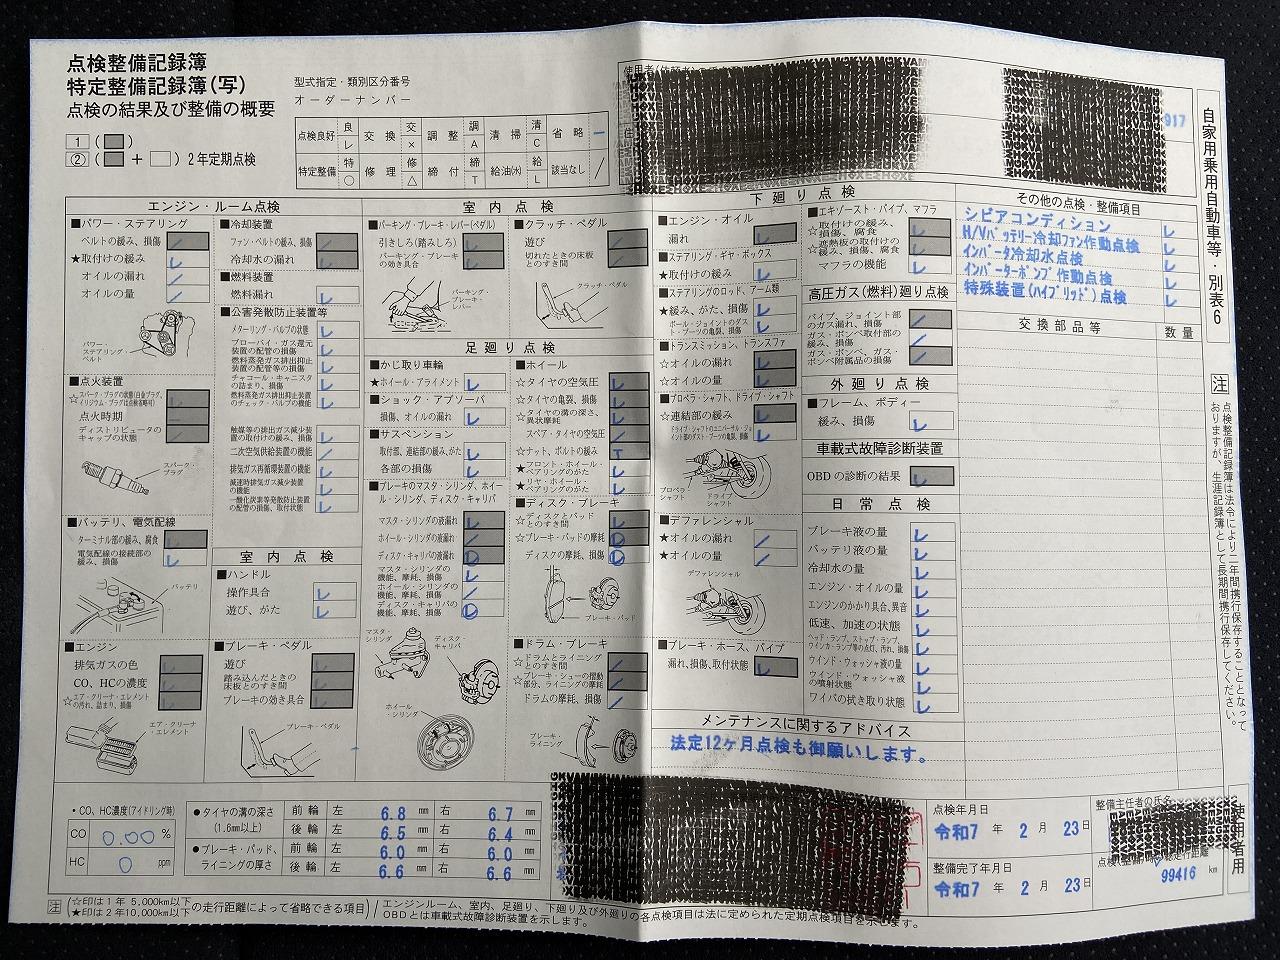 点検整備記録簿
特定整備記録簿(写)
点検の結果及び整備の概要
型式指定・類別区分番号
オーダーナンバー
1 ( )
② ( + ) 2年定期点検
点検良好 レ 交換 × 調整 A 清掃 C 省略 ー
特定整備 ○ 修理 △ 締付 T 給油(水) L 該当なし /
917
自家用乗用自動車等・別表6
エンジン・ルーム点検
■パワー・ステアリング
ベルトの緩み、損傷
★取付けの緩み
オイルの漏れ
オイルの量
パワー・ステアリング・ベルト
■点火装置
点火時期
ディストリビュータのキャップの状態
スパーク・プラグ
■バッテリ、電気配線
ターミナル部の緩み、腐食
電気配線の接続部の緩み、損傷
バッテリ
■エンジン
排気ガスの色
CO、HCの濃度
☆エア・クリーナ・エレメントの汚れ、詰まり、損傷
エア・クリーナ・エレメント
■冷却装置
ファン・ベルトの緩み、損傷
冷却水の漏れ
■燃料装置
燃料漏れ
■公害発散防止装置等
メターリング・バルブの状態
ブローバイ・ガス還元装置の配管の損傷
燃料蒸発ガス排出抑止装置の配管等の損傷
チャコール・キャニスタの詰まり、損傷
燃料蒸発ガス排出抑止装置のチェック・バルブの機能
触媒等の排出ガス減少装置の取付けの緩み、損傷
二次空気供給装置の機能
排気ガス再循環装置の機能
減速時排気ガス減少装置の機能
一酸化炭素等発散防止装置の配管の損傷、取付状態
室内点検
■ハンドル
操作具合
遊び、がた
■ブレーキ・ペダル
遊び
踏み込んだときの床板とのすき間
ブレーキの効き具合
ブレーキ・ペダル
室内点検
■パーキング・ブレーキ・レバー(ペダル)
引きしろ(踏みしろ)
パーキング・ブレーキの効き具合
パーキング・ブレーキ・レバー
■クラッチ・ペダル
遊び
切れたときの床板とのすき間
クラッチ・ペダル
足廻り点検
■かじ取り車輪
★ホイール・アライメント
■ショック・アブソーバ
損傷、オイルの漏れ
■サスペンション
取付部、連結部の緩み、がた
各部の損傷
■ブレーキのマスタ・シリンダ、ホイール・シリンダ、ディスク・キャリパ
マスタ・シリンダの液漏れ
ホイール・シリンダの液漏れ
ディスク・キャリパの液漏れ
マスタ・シリンダの機能、摩耗、損傷
ホイール・シリンダの機能、摩耗、損傷
ディスク・キャリパの機能、摩耗、損傷
マスタ・シリンダ
ディスク・キャリパ
ホイール・シリンダ
■ホイール
☆タイヤの空気圧
☆タイヤの亀裂、損傷
☆タイヤの溝の深さ、異状摩耗
スペア・タイヤの空気圧
☆ナット、ボルトの緩み T
★フロント・ホイール・ベアリングのがた
★リヤ・ホイール・ベアリングのがた
■ディスク・ブレーキ
☆ディスクとパッドとのすき間
☆ブレーキ・パッドの摩耗
ディスクの摩耗、損傷
ブレーキ・パッド
■ドラム・ブレーキ
☆ドラムとライニングとのすき間
☆ブレーキ・シューの摺動部分、ライニングの摩耗
ドラムの摩耗、損傷
ブレーキ・ライニング
下廻り点検
■エンジン・オイル
漏れ
■ステアリング・ギヤ・ボックス
★取付けの緩み
■ステアリングのロッド、アーム類
★緩み、がた、損傷
ボール・ジョイントのダスト・ブーツの亀裂、損傷
■トランスミッション、トランスファ
☆オイルの漏れ
☆オイルの量
■プロペラ・シャフト、ドライブ・シャフト
☆連結部の緩み
ドライブ・シャフトのユニバーサル・ジョイント部のダスト・ブーツの亀裂、損傷
プロペラシャフト
ドライブシャフト
■デファレンシャル
★オイルの漏れ
★オイルの量
デファレンシャル
■ブレーキ・ホース、パイプ
漏れ、損傷、取付状態
■エキゾースト・パイプ、マフラ
☆取付けの緩み、損傷、腐食
☆遮熱板の取付けの緩み、損傷、腐食
マフラの機能
高圧ガス(燃料)廻り点検
パイプ、ジョイント部のガス漏れ、損傷
ガス・ボンベ取付部の緩み、損傷
ガス・ボンベ、ガス・ボンベ附属品の損傷
外廻り点検
■フレーム、ボディー
緩み、損傷
車載式故障診断装置
OBDの診断の結果
日常点検
ブレーキ液の量
バッテリ液の量
冷却水の量
エンジン・オイルの量
エンジンのかかり具合、異音
低速、加速の状態
ヘッド・ランプ、ストップ・ランプ、ウインカ・ランプ等の点灯、汚れ、損傷
ウインド・ウォッシャ液の量
ウインド・ウォッシャ液の噴射状態
ワイパの拭き取り状態
その他の点検・整備項目
シビアコンディション レ
H/Vバッテリー冷却ファン作動点検 レ
インバータ冷却水点検 レ
インバーターポンプ作動点検 レ
特殊装置(ハイブリッド)点検 レ
交換部品等 数量
注 点検整備記録簿は法令により二年間携行保存することとなっておりますが、生涯記録簿として長期間携行保存してください。
メンテナンスに関するアドバイス
法定12ヶ月点検も御願いします。
・CO、HC濃度(アイドリング時)
CO 0.00 %
HC 0 ppm
●タイヤの溝の深さ (1.6mm以上)
前輪 左 6.8 mm 右 6.7 mm
後輪 左 6.5 mm 右 6.4 mm
●ブレーキ・パッド、ライニングの厚さ
前輪 左 6.0 mm 右 6.0 mm
後輪 左 6.6 mm 右 6.6 mm
点検年月日
令和7 年 2 月 23 日
整備完了年月日
令和7 年 2 月 23 日
整備主任者の氏名
99416 km
使用者用
注 (☆印は1年 5,000km以下 ★印は2年10,000km以下 の走行距離によって省略できる項目)
エンジンルーム、室内、足廻り、下廻り及び外廻りの各点検項目は法に定められた定期点検項目を示します。
OBDとは車載式故障診断装置を示します。